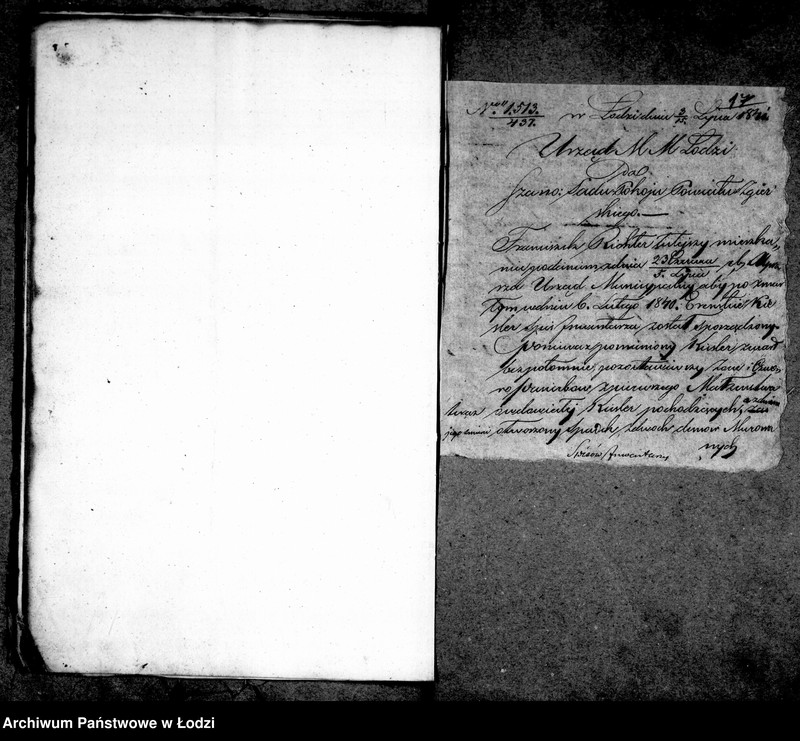 17
Nro 1513.
437.
w Łodzi dnia 3/15 Lipca 1841
Urząd M M Łodzi
Do
Szano: Sądu Pokoju Powiatu Zgier
skiego.
Franciszek Richter tutejszy mieszka,
niec podaniem z dnia 23 Czerwca / 5. Lipca
Urząd Municypalny aby po zmar
łym w dniu 6. Lutego 1840. Ernstie Kie
sler Spis Inwentarza został sporządzony.
Ponieważ pomieniony Kiesler zmarł
bezpotomnie pozostawiwszy żonę
pasierbów z pierwszego Małżeństwa
teraz owdowiałej Kiesler pochodzących,
otworzony spadek z dwóch domów Murowa
nych
Spisów Inwentarzy
Archiwum Państwowe w Łodzi